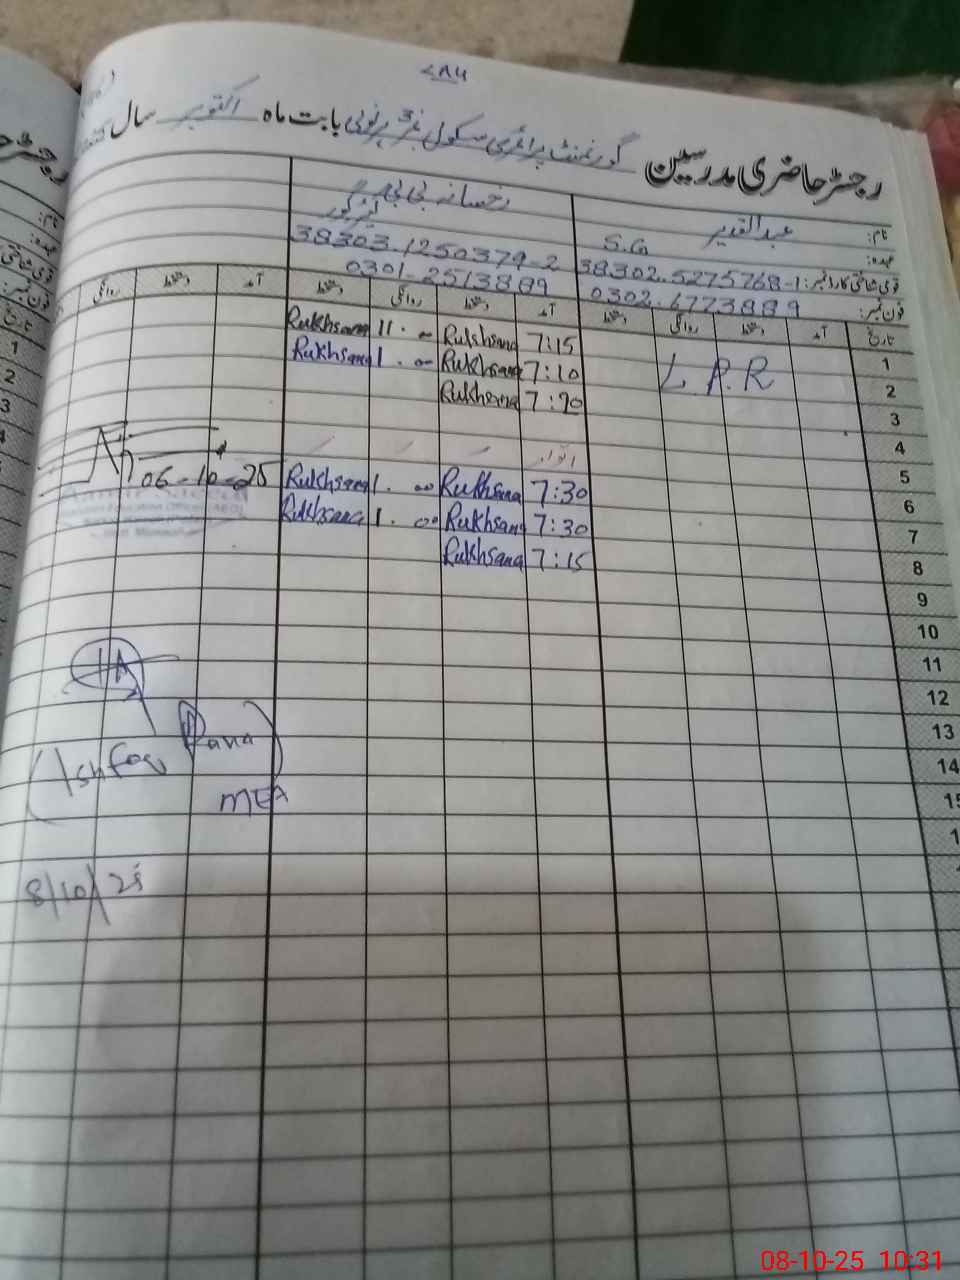 ۷۸۶
رجسٹر حاضری مدرسین گورنمنٹ پرائمری سکول نمبر 3 ہرنولی بابت ماہ اکتوبر سال
نام: عبدالقدیر رخسانہ بی بی
عہدہ: S.G
قومی شناختی کارڈ نمبر: 38302.5275768-1 38303.1250379-2
فون نمبر: 0302.6773889 0301-2513889
تاریخ آمد دستخط روانگی دستخط آمد دستخط روانگی دستخط آمد دستخط روانگی
1 L.P.R 7:15 Rukhsana 11. Rukhsana
2 7:10 Rukhsana 1. Rukhsana
3 Rukhsana
4
5 اتوار
6 7:30 Rukhsana 1.00 Rukhsana 06-10-25
7 7:30 Rukhsana 1.00 Rukhsana
8 7:15 Rukhsana
9
10
11
12
13
14
15
Rana
MEA
8/10/25
08-10-25 10:31